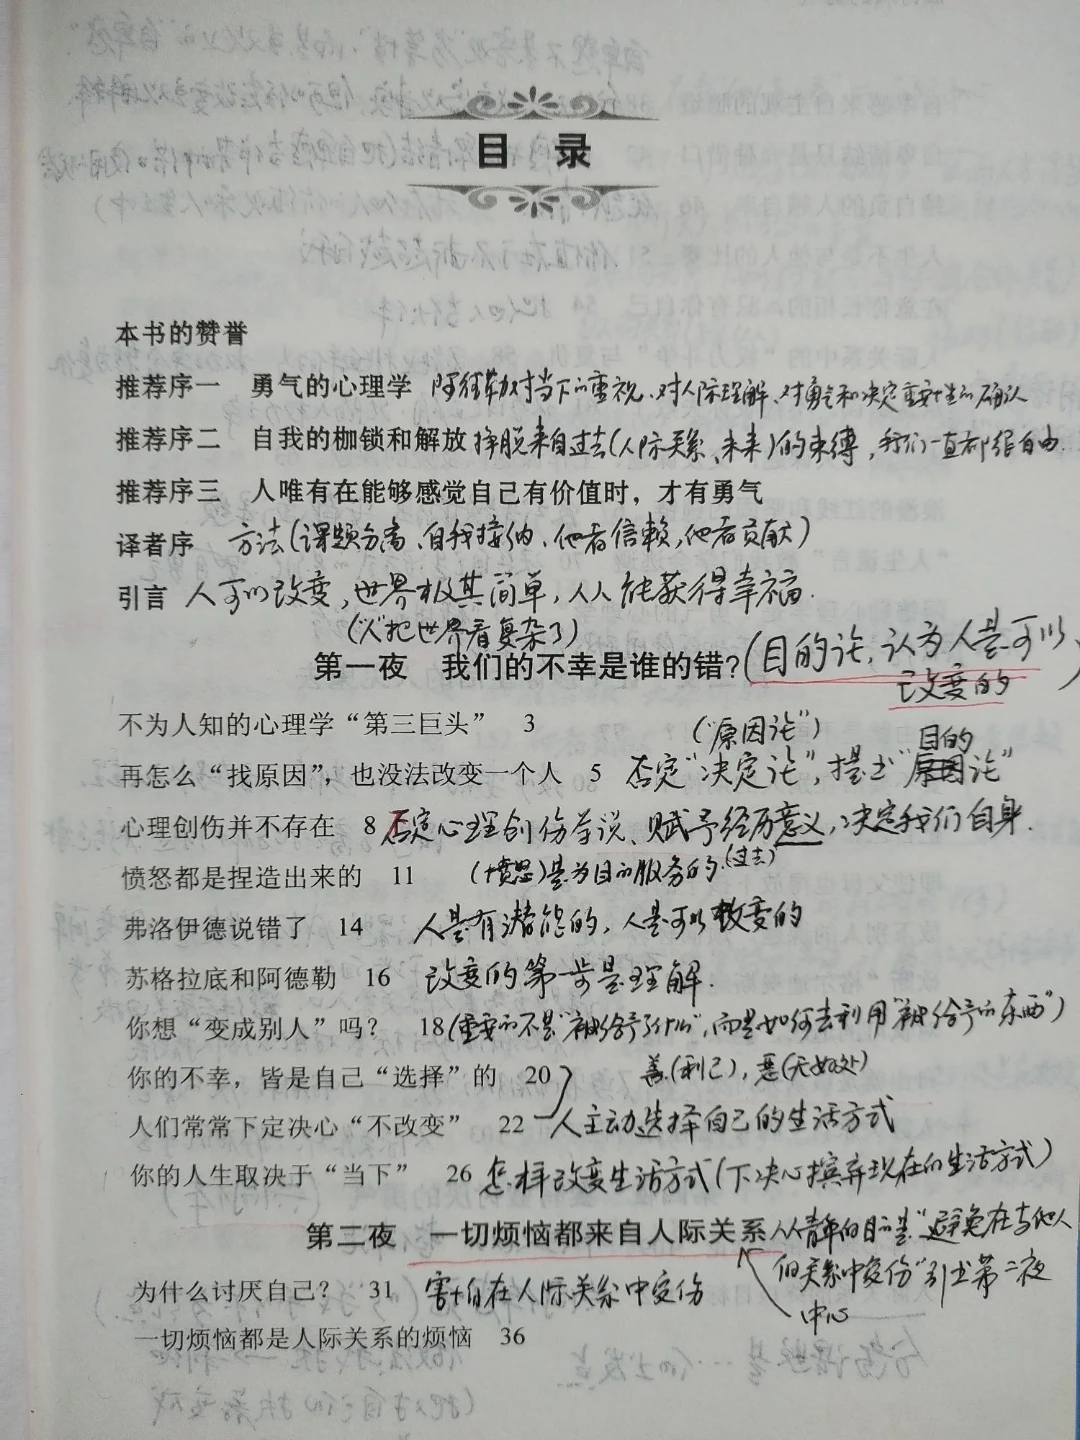 目 录
本书的赞誉
推荐序一 勇气的心理学 阿德勒对当下的重视、对人际理解、对勇气和决定重要性的确认
推荐序二 自我的枷锁和解放 挣脱来自过去(人际关系、未来)的束缚,我们一直都很自由...
推荐序三 人唯有在能够感觉自己有价值时,才有勇气
译者序 方法(课题分离、自我接纳、他者信赖,他者贡献)
引言 人可以改变,世界极其简单,人人能获得幸福.
("人"把世界看复杂了)
第一夜 我们的不幸是谁的错?(目的论,认为人是可以
改变的)
不为人知的心理学“第三巨头” 3
("原因论") 目的
再怎么“找原因”,也没法改变一个人 5 否定"决定论",提出"原因论"
心理创伤并不存在 8 否定心理创伤学说、赋予经历意义,决定我们自身.
愤怒都是捏造出来的 11 (愤怒)是为目的服务的.(过去)
弗洛伊德说错了 14 人是有潜能的,人是可以改变的
苏格拉底和阿德勒 16 改变的第一步是理解.
你想“变成别人”吗? 18 (重要的不是"被给予了什么",而是如何去利用"被给予的东西")
你的不幸,皆是自己“选择”的 20 善(利己),恶(无好处)
人们常常下定决心“不改变” 22 人主动选择自己的生活方式
你的人生取决于“当下” 26 怎样改变生活方式(下决心摈弃现在的生活方式)
第二夜 一切烦恼都来自人际关系 从青年的目的是"避免在与他人
的关系中受伤"引出第二夜
中心
为什么讨厌自己? 31 害怕在人际关系中受伤
一切烦恼都是人际关系的烦恼 36